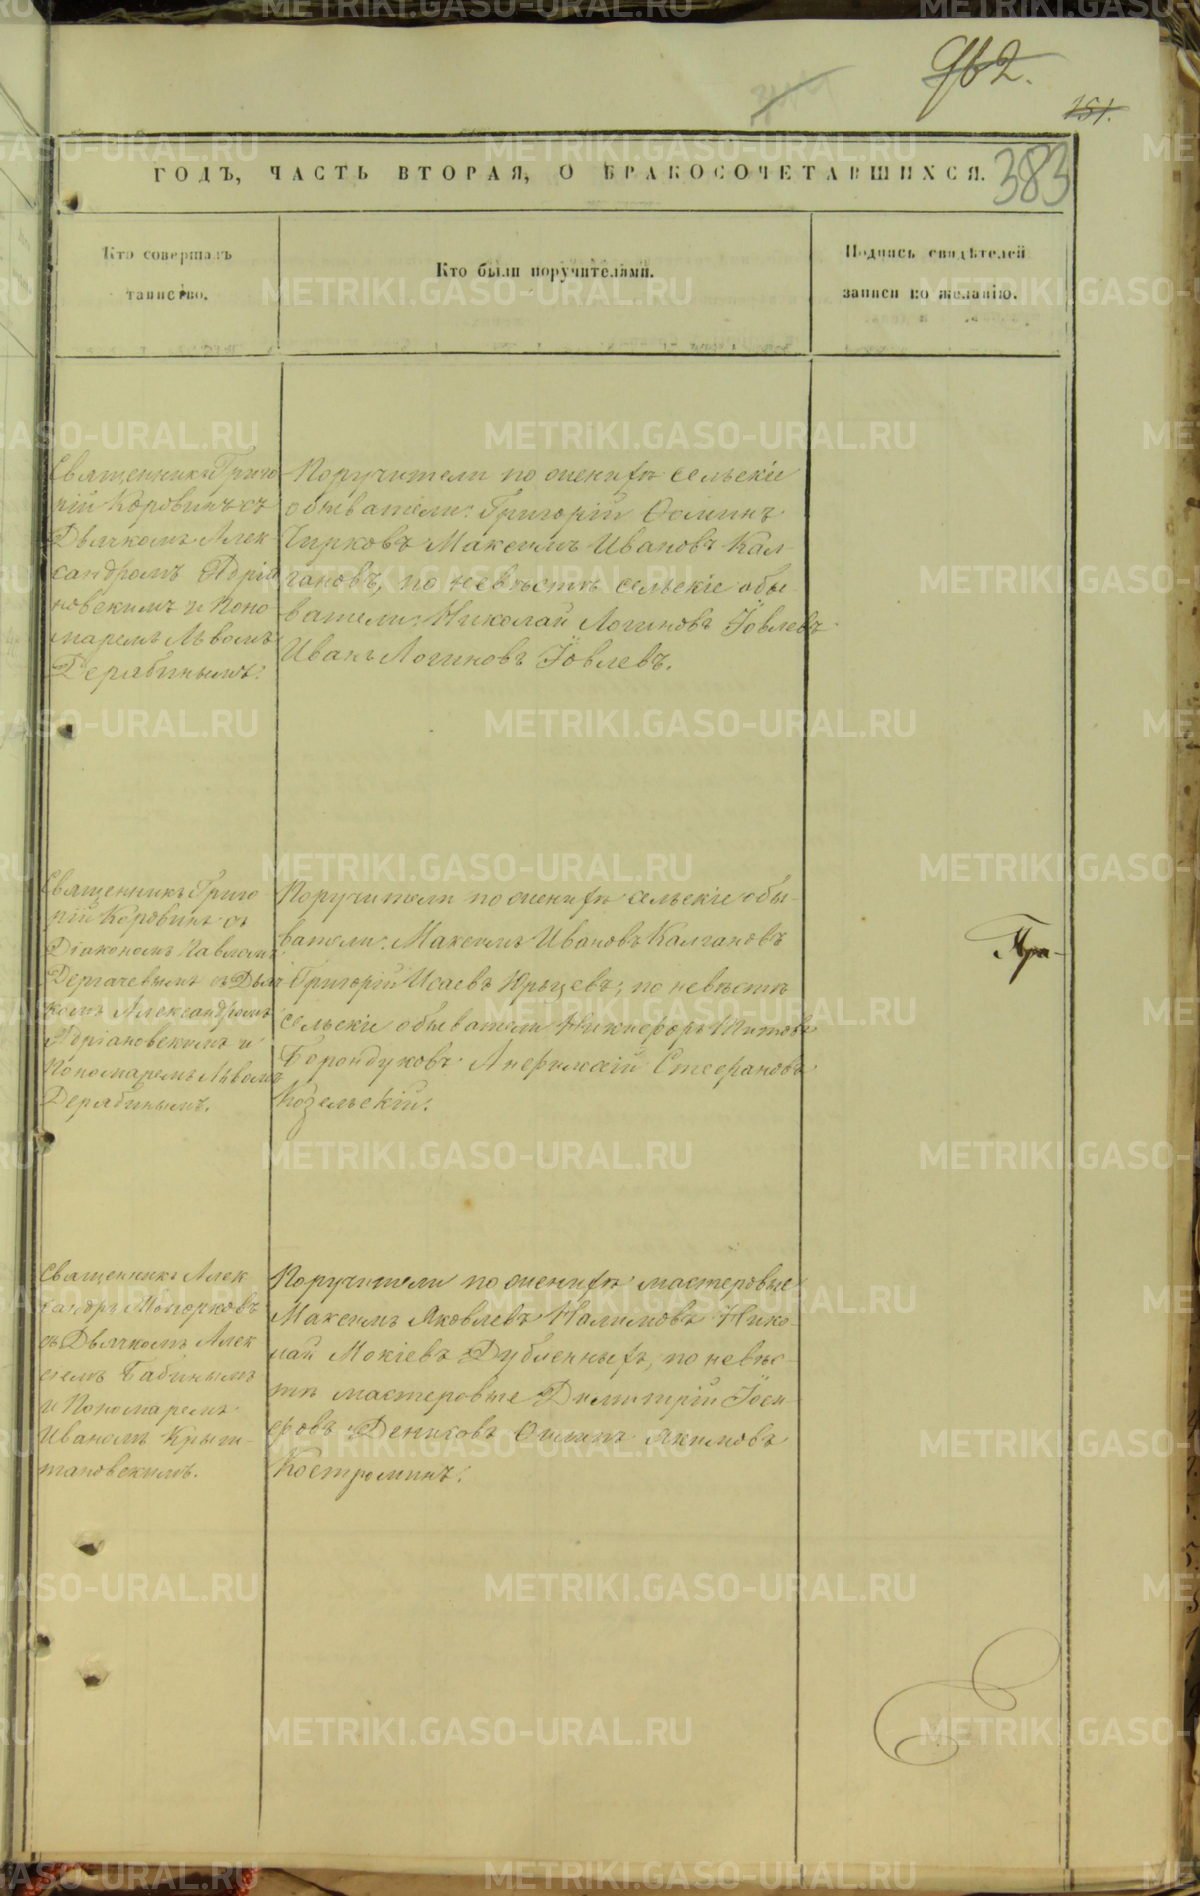 962.
151.
383
ГОДЪ, ЧАСТЬ ВТОРАЯ, О БРАКОСОЧЕТАВШИХСЯ.
Кто совершалъ
таинство.
Кто были поручителями.
Подпись свидѣтелей
записи по желанію.
Священникъ Григо
рій Коровинъ съ
Дьячкомъ Алек
сандромъ Адріа
новскимъ и Поно
маремъ Львомъ
Дерябинымъ.
Поручители по женихѣ сельскіе
обыватели: Григорій Ѳоминъ
Чирковъ Максимъ Ивановъ Кал
гановъ, по невѣстѣ сельскіе обы
ватели: Николай Логиновъ Іовлевъ
Иванъ Логиновъ Іовлевъ.
Священникъ Григо
рій Коровинъ съ
Діакономъ Павломъ
Дергачевымъ съ Дьяч
комъ Александромъ
Адріановскимъ и
Пономаремъ Львомъ
Дерябинымъ.
Поручители по женихѣ сельскіе обы
ватели: Максимъ Ивановъ Калгановъ
Григорій Исаевъ Юрьцевъ; по невѣстѣ
сельскіе обыватели Никифоръ Титовъ
Борондуковъ Стефановъ
Козельскій.
Пра-
Священникъ Алек
сандръ Топорковъ
съ Дьячкомъ Алек
сѣемъ Бабинымъ
и Пономаремъ
Иваномъ Крыж-
тановскимъ.
Поручители по женихѣ мастеровые
Максимъ Яковлевъ Налимовъ Нико-
лай Мокіевъ Дубленныхъ, по невѣс-
тѣ мастеровые Димитрій Іоси-
фовъ Дениковъ Ѳилипъ Якимовъ
Костроминъ.
METRIKI.GASO-URAL.RU